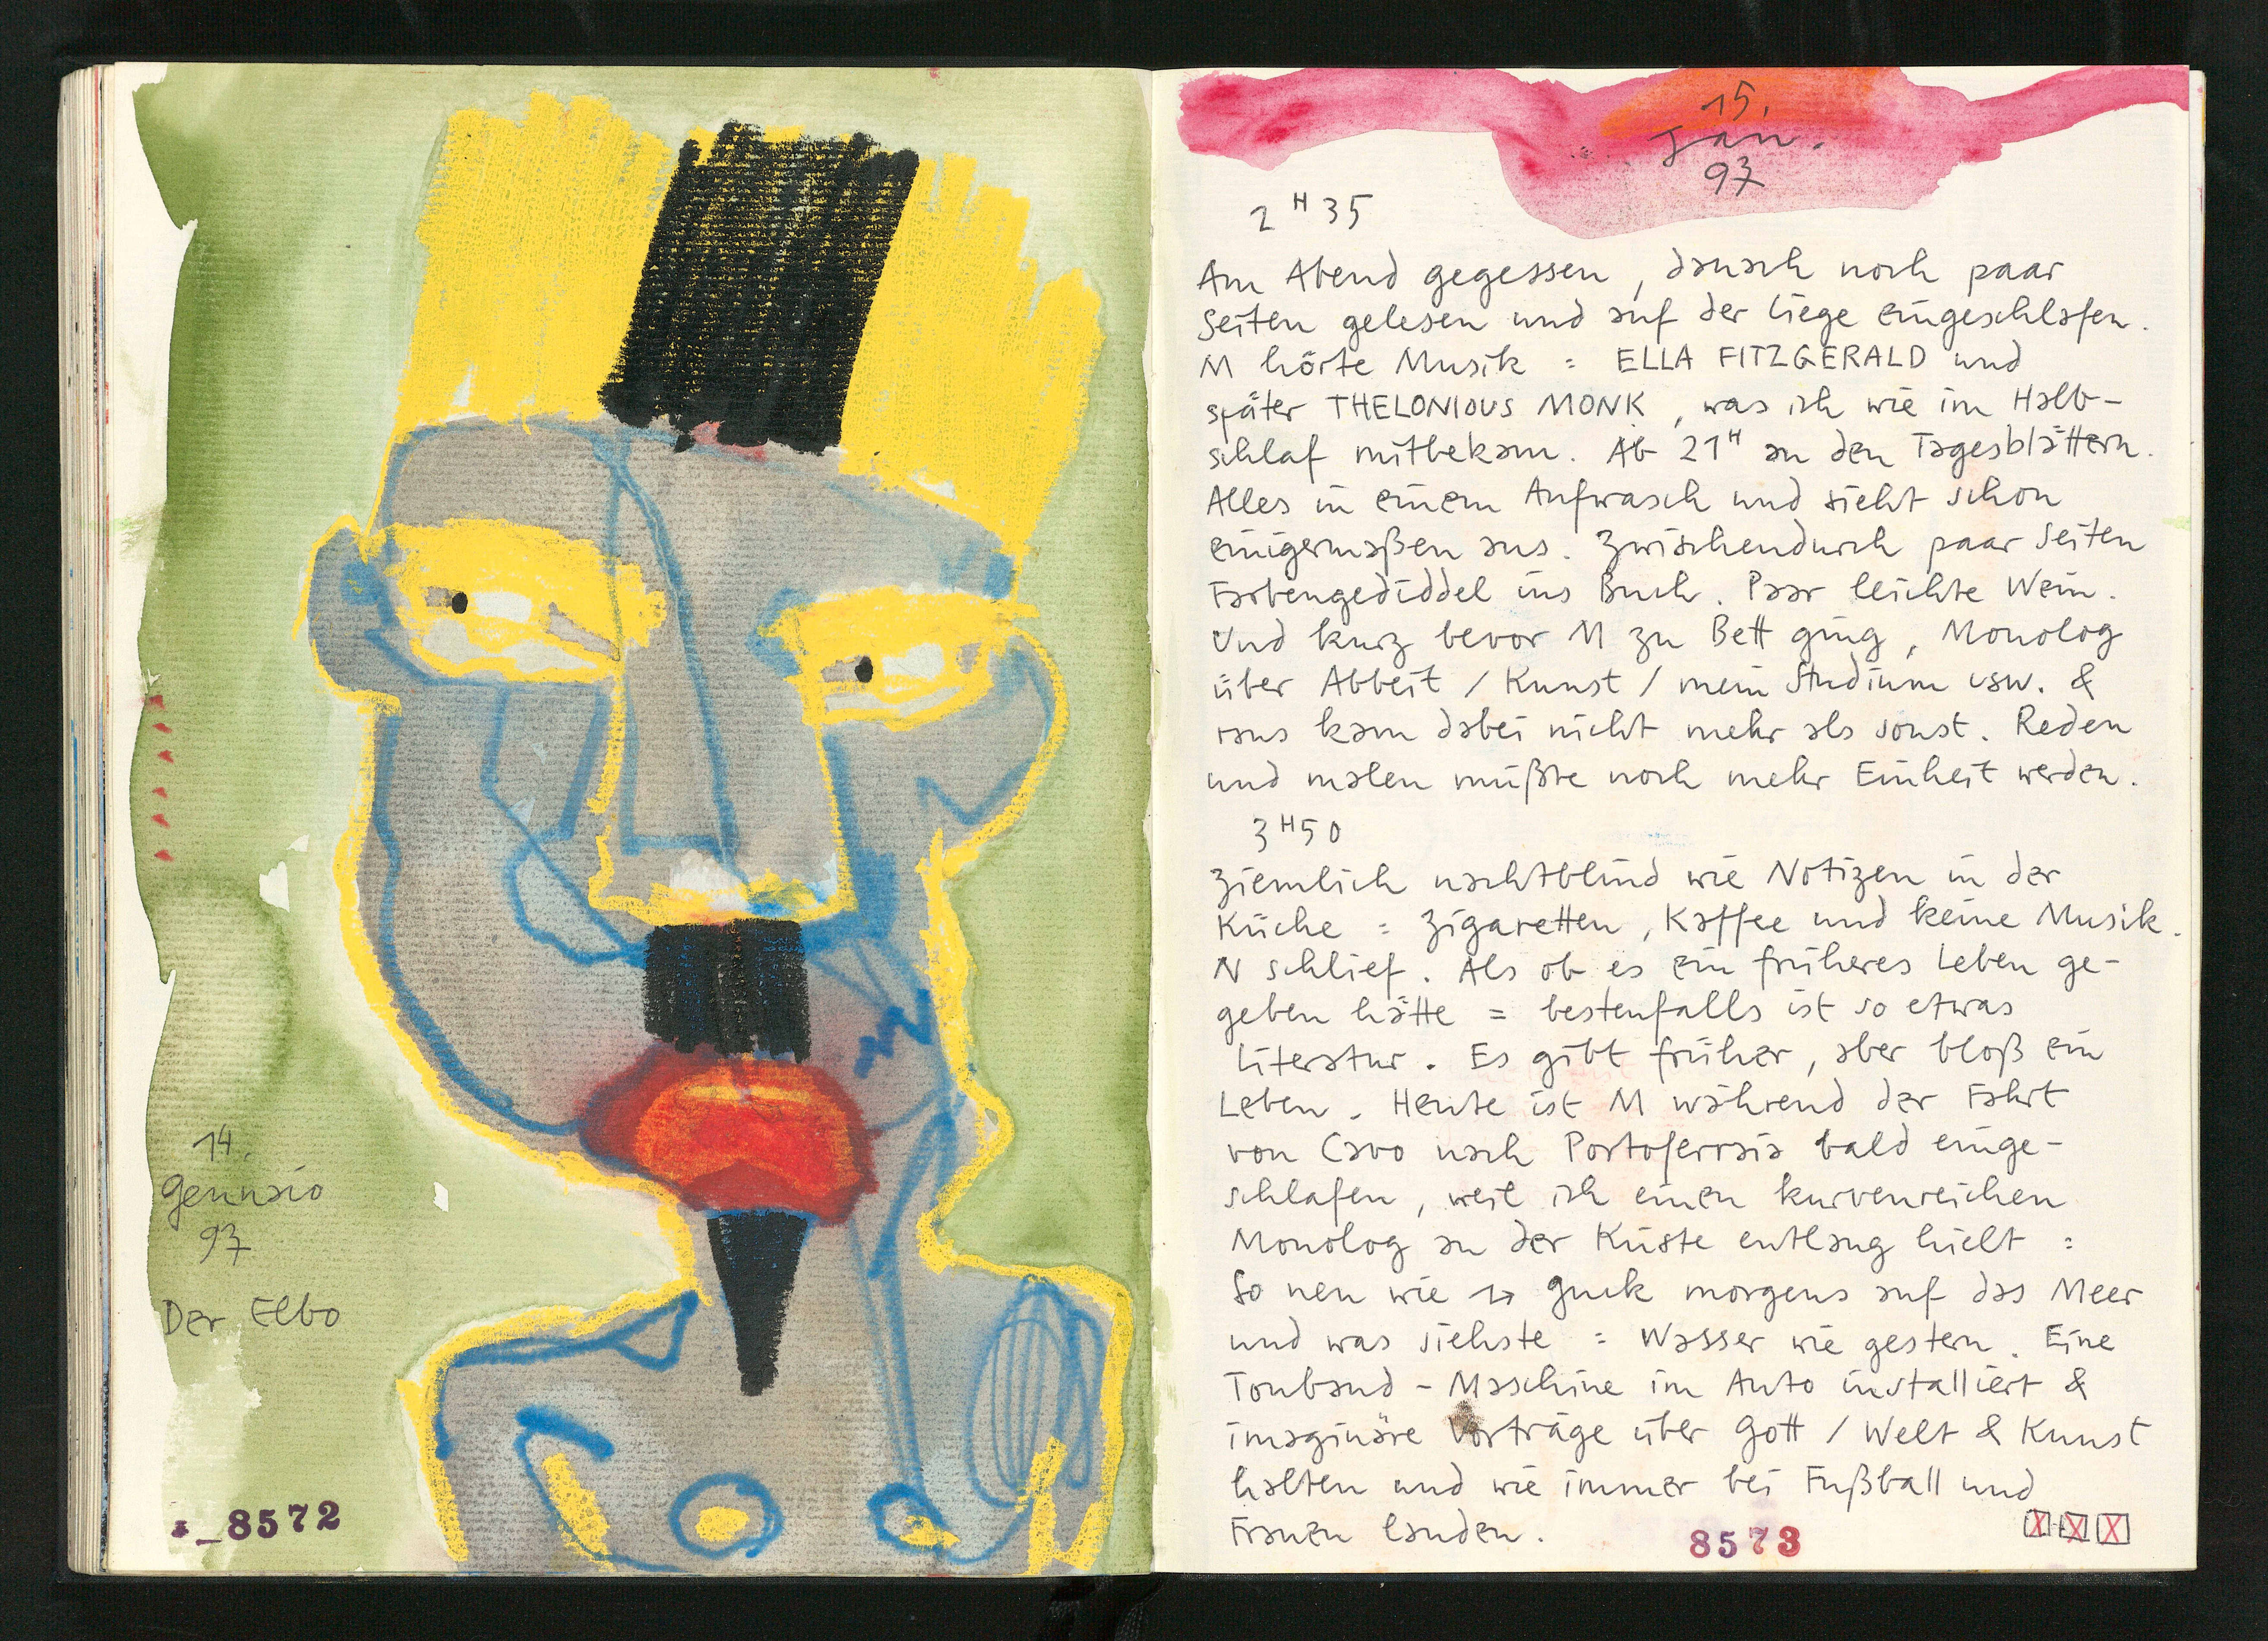 14.
Gennaio
97
Der Elbo
_8572
15.
Jan.
97
2 H 35
Am Abend gegessen, danach noch paar
Seiten gelesen und auf der Liege eingeschlafen.
M hörte Musik = ELLA FITZGERALD und
später THELONIOUS MONK, was ich wie im Halb-
schlaf mitbekam. Ab 21 H an den Tagesblättern.
Alles in einem Aufwasch und sieht schon
einigermaßen aus. Zwischendurch paar Seiten
Farbengediddel ins Buch. Paar leichte Wein.
Und kurz bevor M zu Bett ging, Monolog
über Abbeit / Kunst / mein Studium usw. &
raus kam dabei nicht mehr als sonst. Reden
und malen müßte noch mehr Einheit werden.
3 H 50
Ziemlich nachtblind wie Notizen in der
Küche = Zigaretten, Kaffee und keine Musik.
N schlief. Als ob es ein früheres Leben ge-
geben hätte = bestenfalls ist so etwas
Literatur. Es gibt früher, aber bloß ein
Leben. Heute ist M während der Fahrt
von Cavo nach Portoferraio bald einge-
schlafen, weil ich einen kurvenreichen
Monolog an der Küste entlang hielt =
So neu wie → guck morgens auf das Meer
und was siehste = Wasser wie gestern. Eine
Tonband-Maschine im Auto installiert &
imaginäre Vorträge über Gott / Welt & Kunst
halten und wie immer bei Fußball und
Frauen landen.
8573